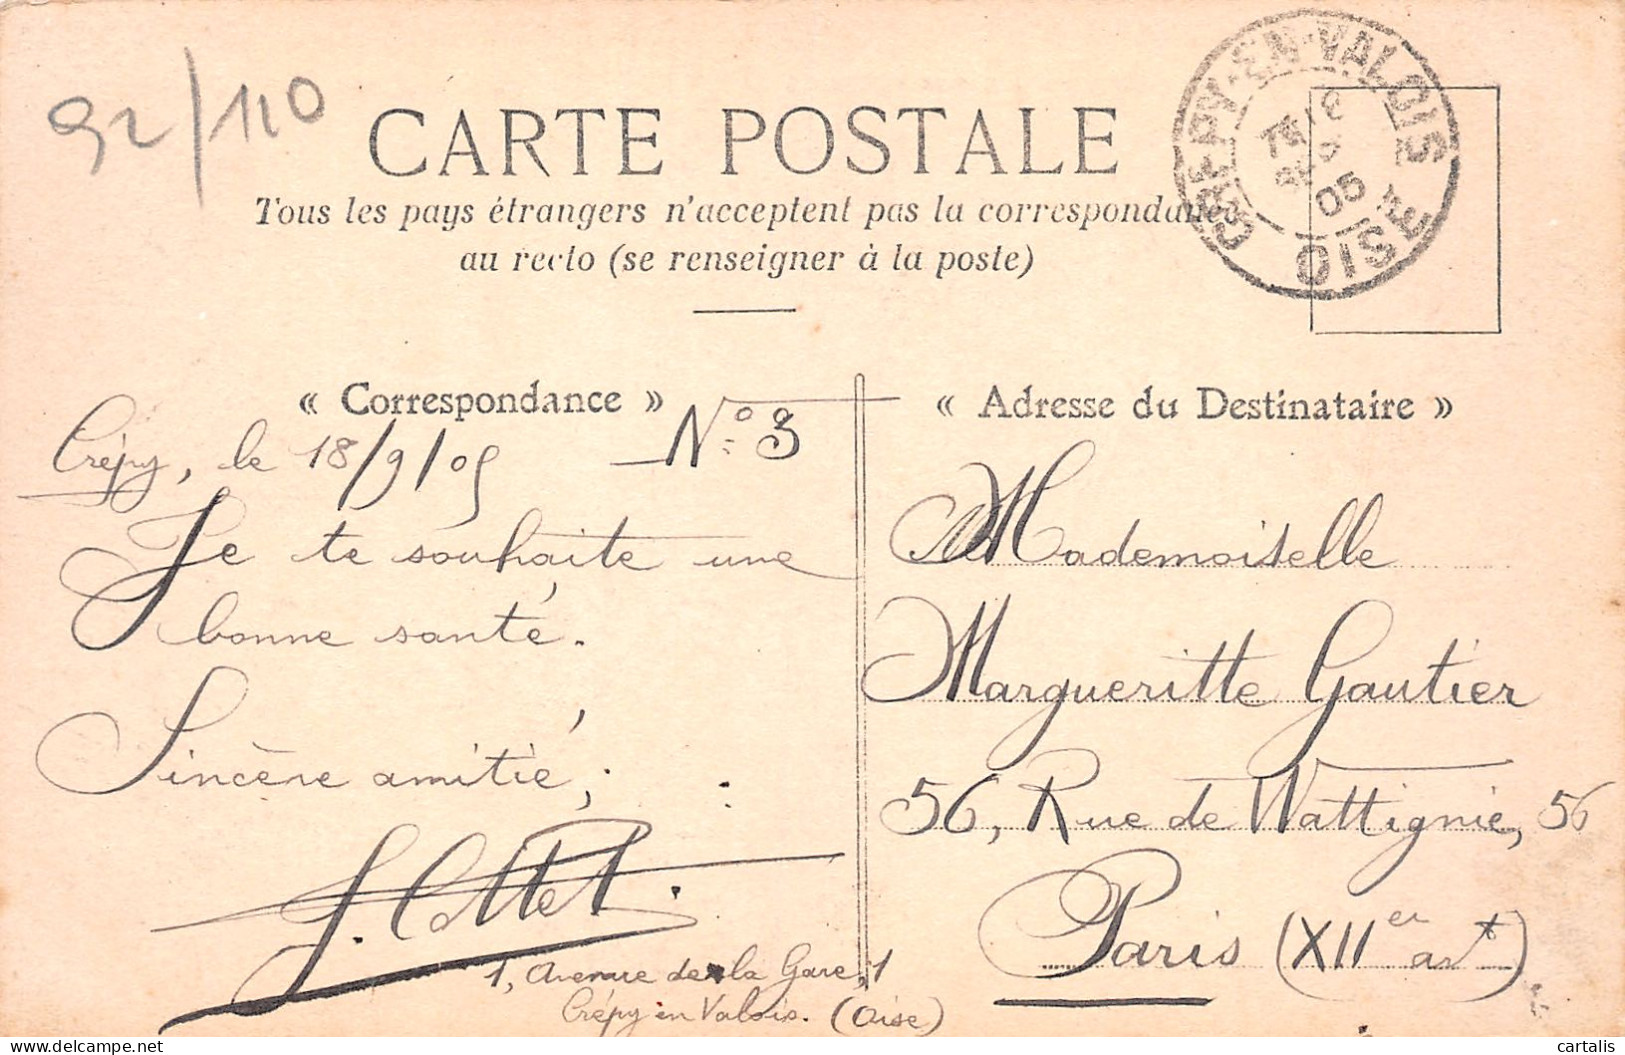 92/110
CARTE POSTALE
Tous les pays étrangers n'acceptent pas la correspondance
au recto (se renseigner à la poste)
CREPY-EN-VALOIS
05
OISE
« Correspondance »
Crépy, le 18/9/05 N° 3
Je te souhaite une
bonne santé.
Sincère amitié,
J. Collet.
1, Avenue de la Gare, 1
Crépy en Valois. (Oise)
« Adresse du Destinataire »
Mademoiselle
Margueritte Gautier
56, Rue de Wattignie, 56
Paris (XIIer art)
delcampe.net
cartalis